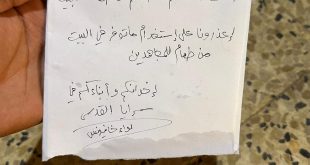 إعذرونا على إستخدام ماتوفر في البيت
من طعام للمجاهدين
إخوانكم وأبناءكم في
سرايا القدس
لواء خانيونس